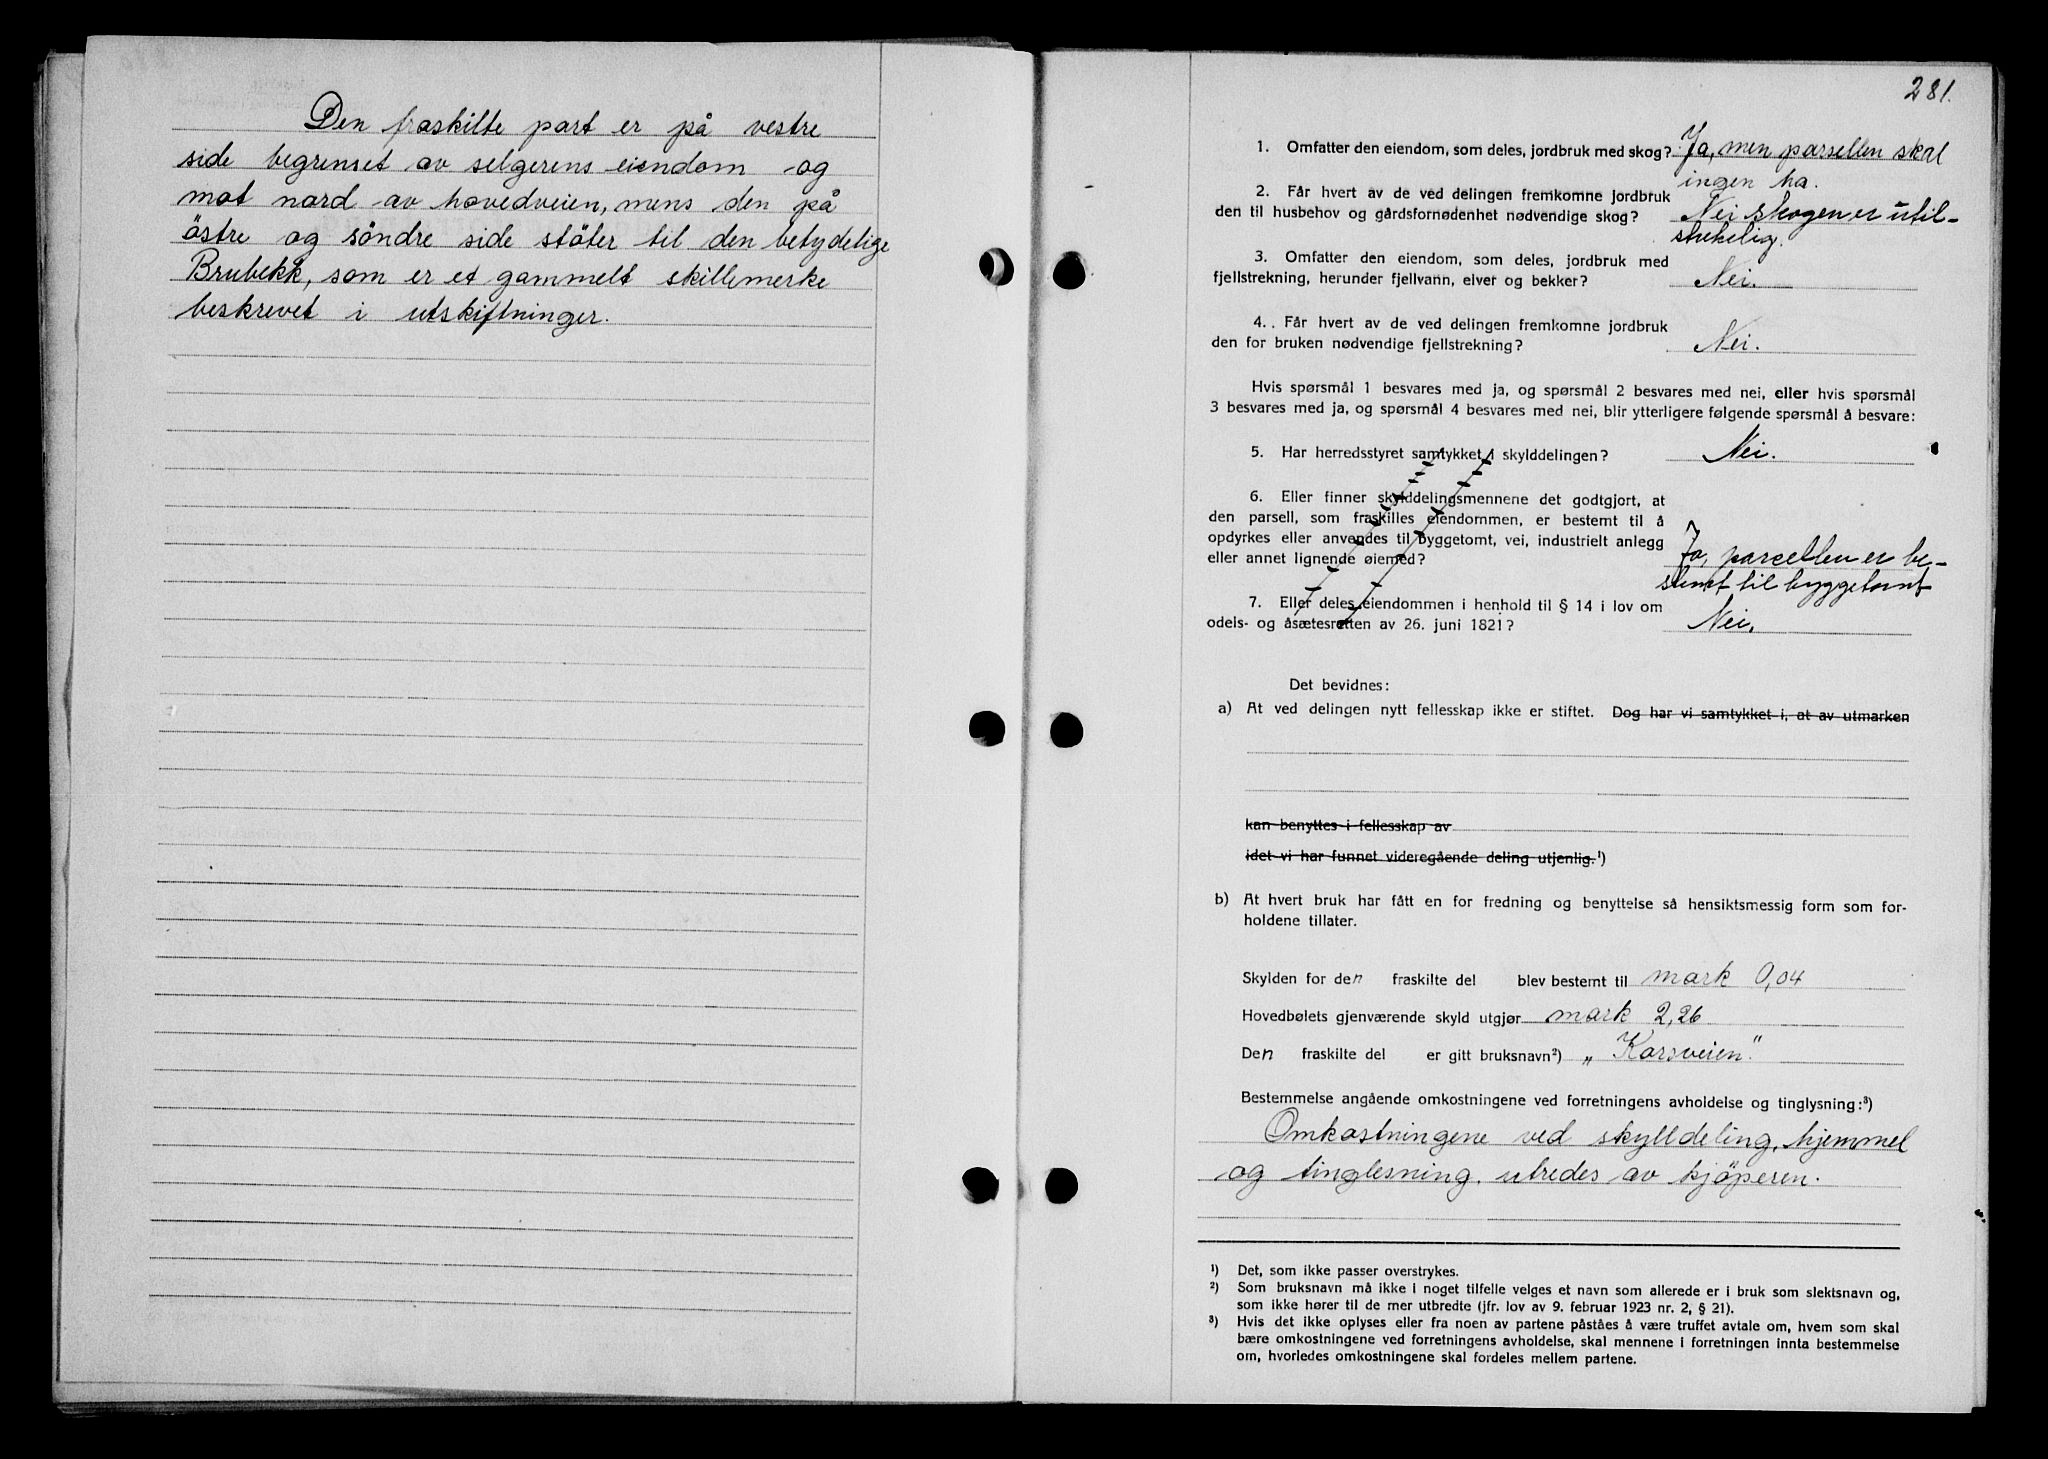 Den fraskilte part er på vestre
side begrenset av selgerens eiendom og
mot nord av hovedveien, mens den på
östre og söndre side stöter til den betydelige
Brubekk, som er et gammelt skillemerke
beskrevet i utskiftninger.
281.
1. Omfatter den eiendom, som deles, jordbruk med skog? Ja, men parsellen skal
ingen ha.
2. Får hvert av de ved delingen fremkomne jordbruk
den til husbehov og gårdsfornødenhet nødvendige skog? Nei skogen er util-
strekelig.
3. Omfatter den eiendom, som deles, jordbruk med
fjellstrekning, herunder fjellvann, elver og bekker? Nei.
4. . Får hvert av de ved delingen fremkomne jordbruk
den for bruken nødvendige fjellstrekning? Nei.
Hvis spørsmål 1 besvares med ja, og spørsmål 2 besvares med nei, eller hvis spørsmål
3 besvares med ja, og spørsmål 4 besvares med nei, blir ytterligere følgende spørsmål å besvare:
5. Har herredsstyret samtykket i skylddelingen? Nei.
6. Eller finner skylddelingsmennene det godtgjort, at
den parsell, som fraskilles eiendommen, er bestemt til å
opdyrkes eller anvendes til byggetomt, vei, industrielt anlegg
eller annet lignende øiemed? Ja, parcellen er be-
stemt til byggetomt
7. Eller deles eiendommen i henhold til § 14 i lov om
odels- og åsætesretten av 26. juni 1821? Nei.
Det bevidnes:
a) At ved delingen nytt fellesskap ikke er stiftet. Dog har vi samtykket i, at av utmarken
kan benyttes i fellesskap av
idet vi har funnet videregående deling utjenlig.¹)
b) At hvert bruk har fått en for fredning og benyttelse så hensiktsmessig form som for-
holdene tillater.
Skylden for den fraskilte del blev bestemt til mark 0,04
Hovedbølets gjenværende skyld utgjør mark 2,26
Den fraskilte del er gitt bruksnavn²) „Korsveien"
Bestemmelse angående omkostningene ved forretningens avholdelse og tinglysning:³)
Omkostningene ved skylldeling, hjemmel
og tinglesning. utredes av kjöperen.
¹) Det, som ikke passer overstrykes.
²) Som bruksnavn må ikke i noget tilfelle velges et navn som allerede er i bruk som slektsnavn og,
som ikke hører til de mer utbredte (jfr. lov av 9. februar 1923 nr. 2, § 21).
³) Hvis det ikke oplyses eller fra noen av partene påståes å være truffet avtale om, hvem som skal
bære omkostningene ved forretningens avholdelse, skal mennene i forretningen innta bestemmelse
om, hvorledes omkostningene skal fordeles mellem partene.